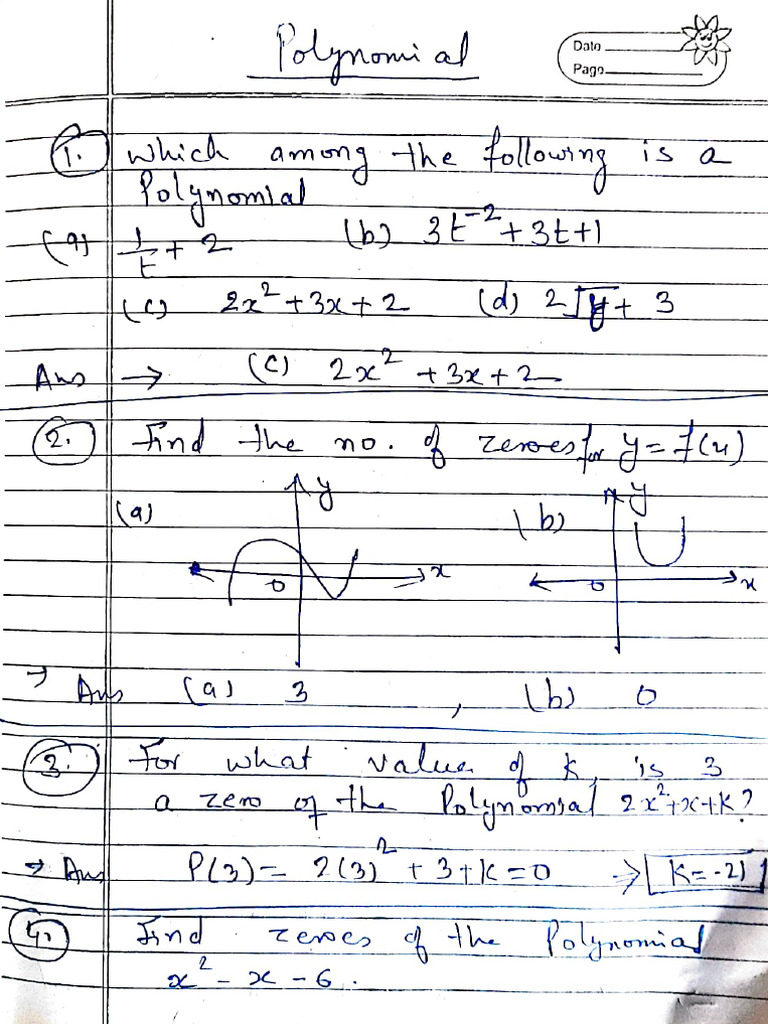 Polynomial
Date
Page
1. Which among the following is a
Polynomial
(a) 1/t + 2 (b) 3t⁻² + 3t + 1
(c) 2x² + 3x + 2 (d) 2√y + 3
Ans → (c) 2x² + 3x + 2
2. Find the no. of zeroes for y = f(x)
(a) y (b) y
O x O x
→ Ans (a) 3 , (b) 0
3. For what value of k, is 3
a zero of the Polynomial 2x² + x + k?
→ Ans P(3) = 2(3)² + 3 + k = 0 → k = -21
4. Find zeroes of the Polynomial
x² - x - 6.